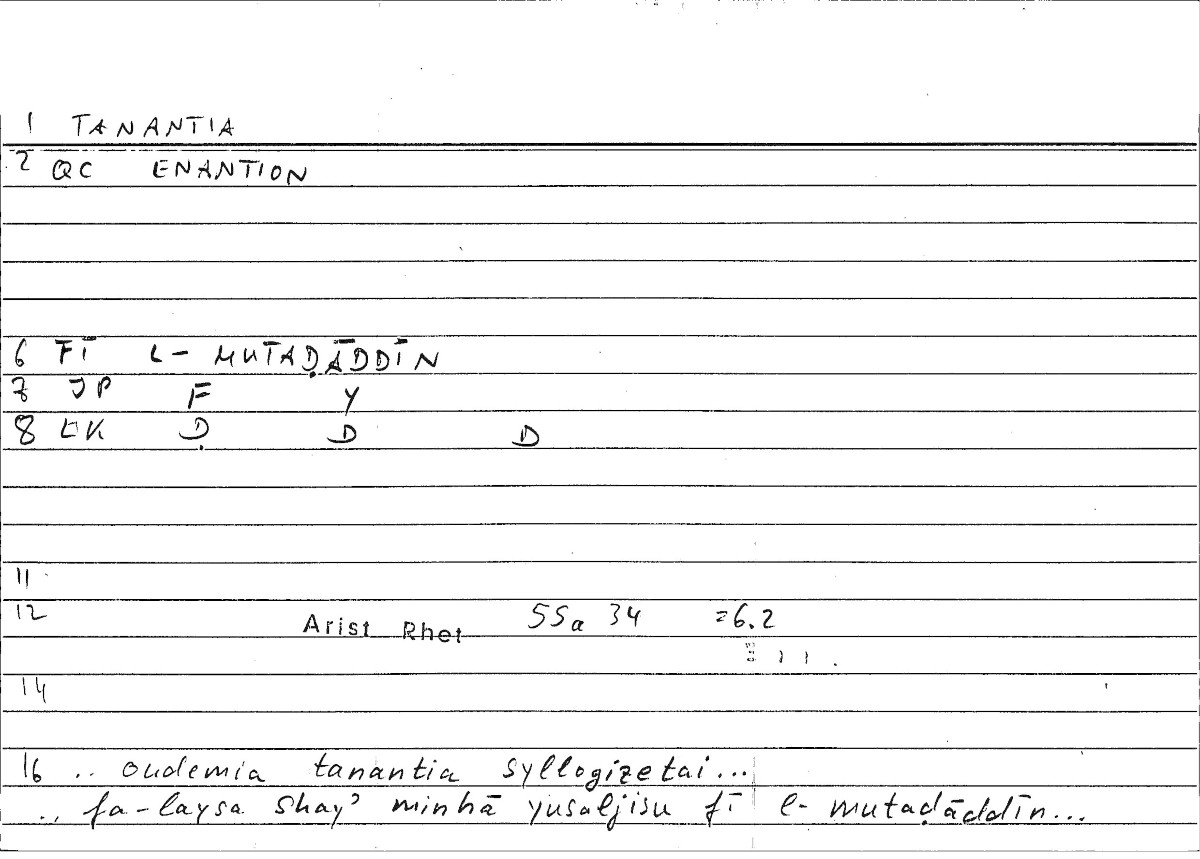 1 TANANTIA
2 QC ENANTION
6 FĪ L- MUTAḌĀDDĪN
7 JP F Y
8 EK Ḍ D D
11
12 Arist Rhet 55a 34 =6.2
14
16 .. oudemia tanantia syllogizetai...
.. fa-laysa shayʾ minhā yusaljisu fī l- mutaḍāddīn...